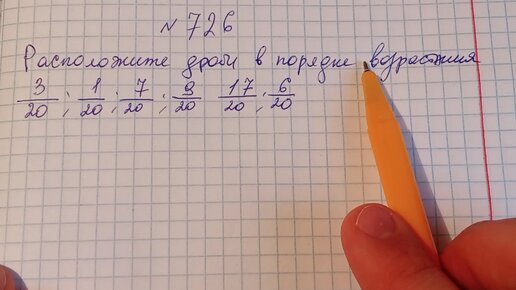 № 726
Расположите дроби в порядке возрастания
3/20 ; 1/20 ; 7/20 ; 9/20 17/20 ; 6/20